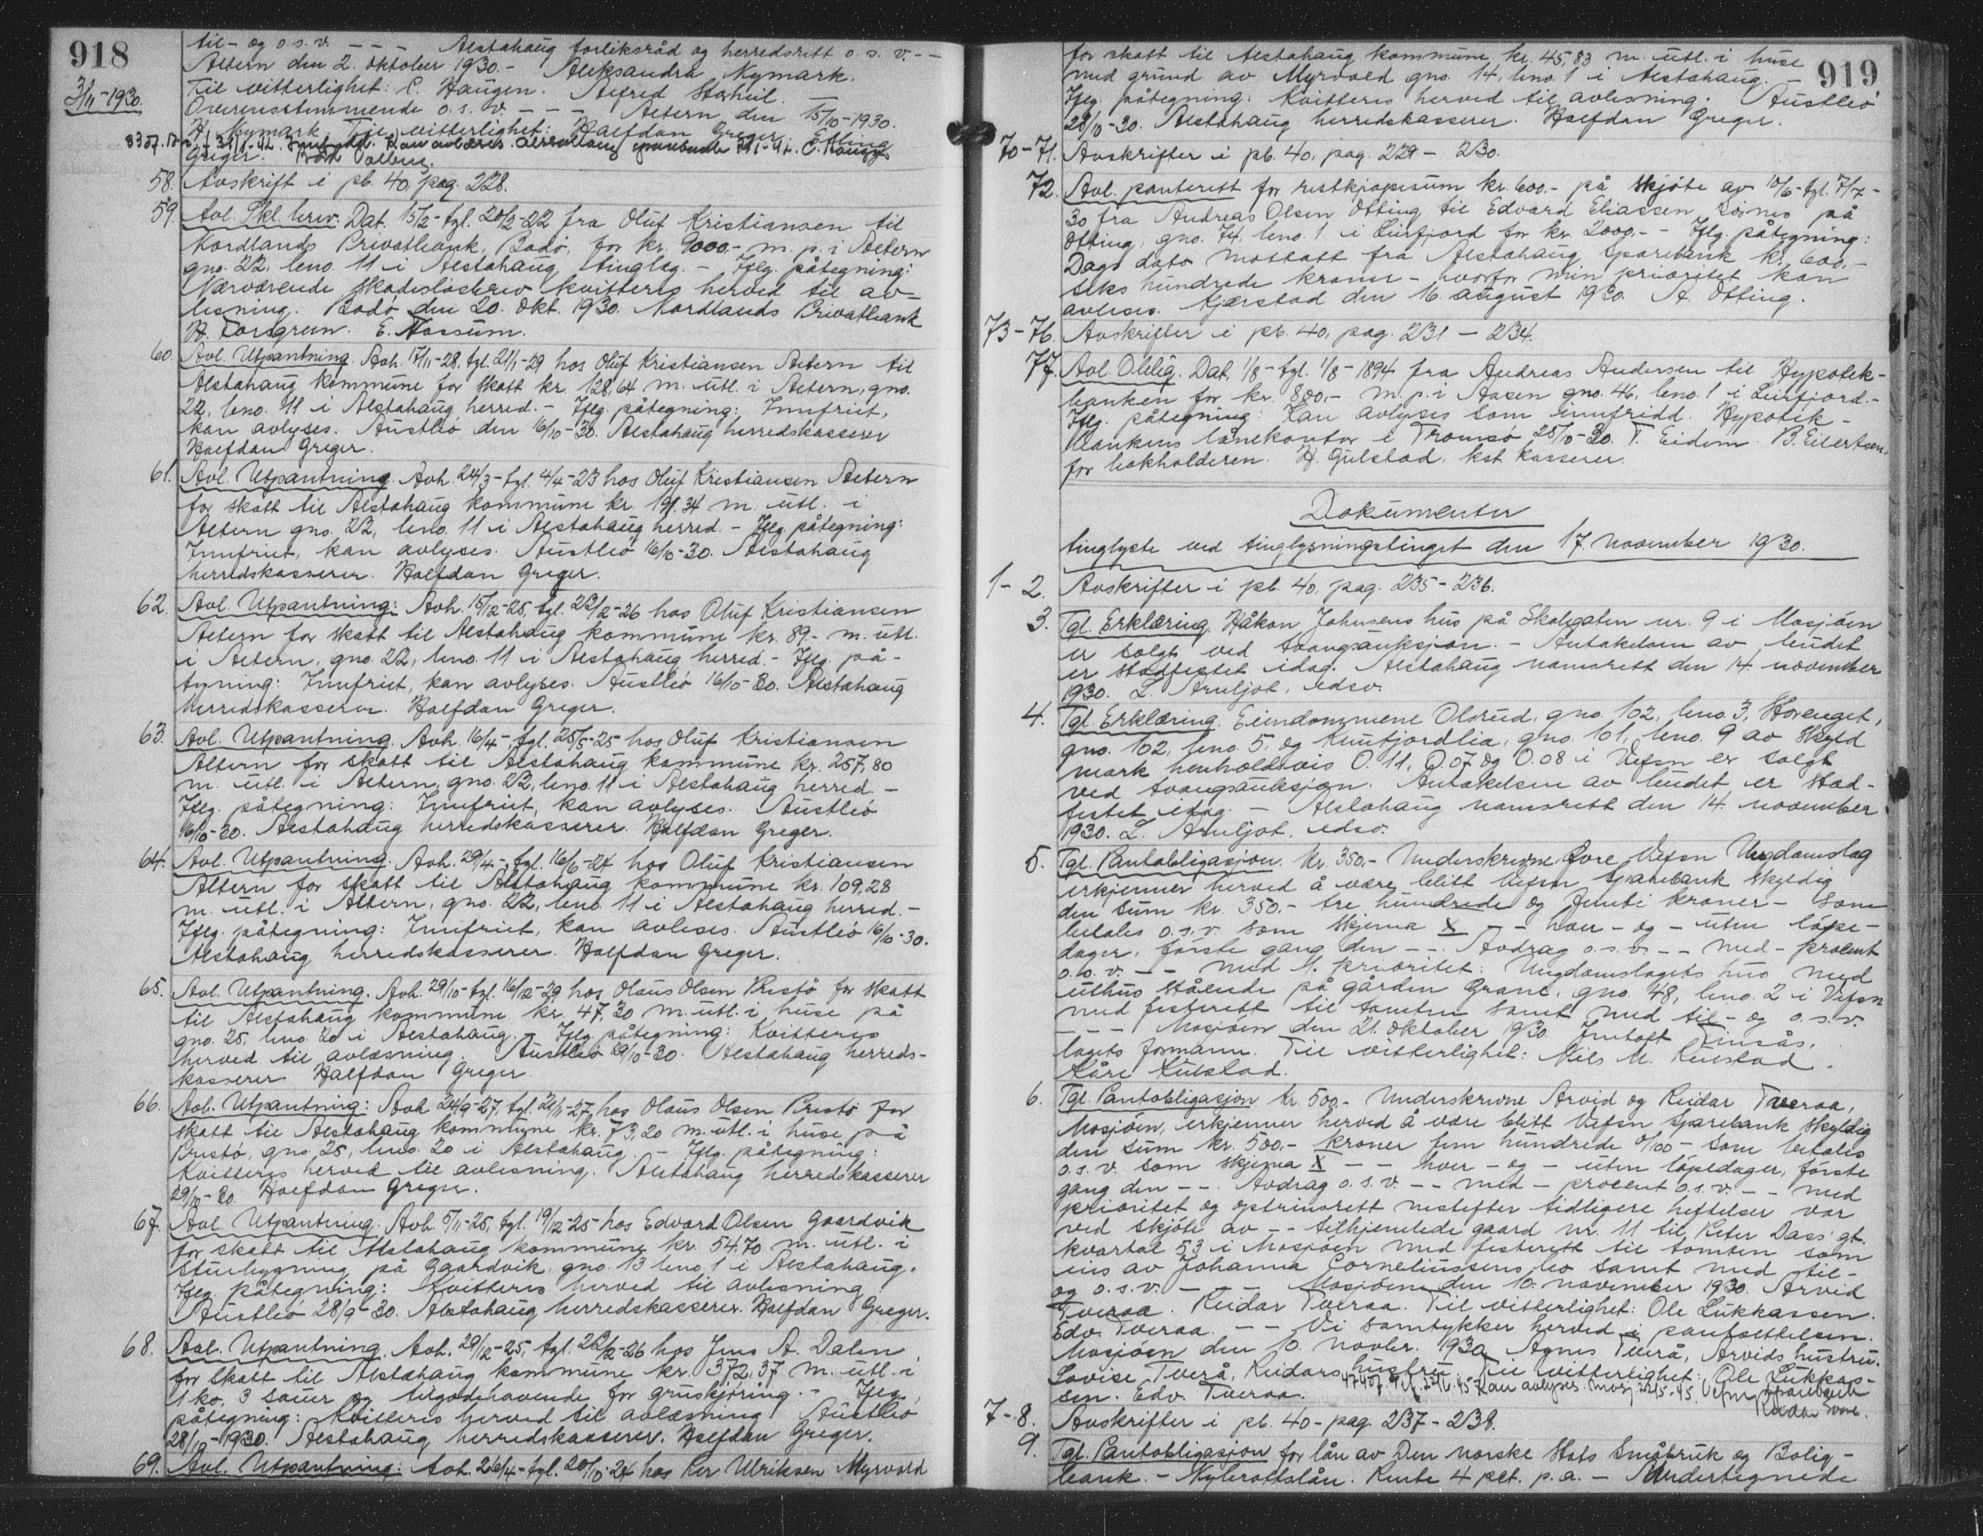 918
3/11-1930.
til- og o.s.v. - - - Alstahaug forliksråd og herredsrett o.s.v. - -
Altern den 2. oktober 1930. - Aleksandra Nymark.
Til vitterlighet: C. Haugen. Alfred Storhul.
Overensstemmende o.s.v. - - - Altern den 15/10-1930.
H. Nymark. Til vitterlighet: Halfdan Greger. Erling
Greger.
58. Avskrift i pb. 40, pag. 228.
59. Avl. Skl. brev. Dat. 15/2- tgl. 20/2-22 fra Oluf Kristiansen til
Nordlands Privatbank, Bodø, for kr. 9000.- m. p. i Altern
gno. 22, bno. 11 i Alstahaug tinglag. - Iflg. påtegning:
Nærværende skadesløsbrev kvitteres herved til av-
lesning. Bodø den 20. okt. 1930. Nordlands Privatbank
E. Fossum.
60. Avl. Utpantning. Avh. 17/11-28, tgl. 21/1-29 hos Oluf Kristiansen Altern til
Alstahaug kommune for skatt kr. 128,64 m. utl. i Altern, gno.
22, bno. 11 i Alstahaug herred. - Iflg. påtegning: Innfriet,
kan avlyses. Austbø den 16/10-30. Alstahaug herredskasserer
Halfdan Greger.
61. Avl. Utpantning. Avh. 24/3- tgl. 4/4-23 hos Oluf Kristiansen Altern
for skatt til Alstahaug kommune kr. 191.34 m. utl. i
Altern gno. 22, bno. 11 i Alstahaug herred. - Iflg. påtegning:
Innfriet, kan avlyses. Austbø 16/10-30. Alstahaug
herredskasserer. Halfdan Greger.
62. Avl. Utpantning: Avh. 15/12-25, tgl. 23/2-26 hos Oluf Kristiansen
Altern for skatt til Alstahaug kommune kr. 89.- m. utl.
i Altern, gno. 22, bno. 11 i Alstahaug herred. - Iflg. på-
tegning: Innfriet, kan avlyses. Austbø 16/10-30. Alstahaug
herredskasserer. Halfdan Greger.
63. Avl. Utpantning. Avh. 16/4- tgl. 25/5-25 hos Oluf Kristiansen
Altern for skatt til Alstahaug kommune kr. 257,80
m. utl. i Altern, gno. 22, bno. 11 i Alstahaug herred. -
Iflg. påtegning: Innfriet, kan avlyses. Austbø
16/10-30. Alstahaug herredskasserer. Halfdan Greger.
64. Avl. Utpantning. Avh. 29/4- tgl. 16/6-24 hos Oluf Kristiansen
Altern for skatt til Alstahaug kommune kr. 109.28
m. utl. i Altern, gno. 22, bno. 11 i Alstahaug herred. -
Iflg. påtegning: Innfriet, kan avleses. Austbø 16/10-30.
Alstahaug herredskasserer. Halfdan Greger.
65. Avl. Utpantning. Avh. 29/10- tgl. 16/12-29 hos Olaus Olsen Prestø for skatt
til Alstahaug kommune kr. 47,30 m. utl. i huse på
gno. 25, bno. 20 i Alstahaug. - Iflg. påtegning: Kvitteres
herved til avlæsning. Austbø 29/10-30. Alstahaug herreds-
kasserer Halfdan Greger.
66. Avl. Utpantning: Avh. 24/9-27, tgl. 21/11-27 hos Olaus Olsen Prestø for
skatt til Alstahaug kommune kr. 73,20 m. utl. i huse på
Prestø, gno. 25, bno. 20 i Alstahaug. - Iflg. påtegning:
Kvitteres herved til avlesning. Alstahaug herredskasserer
29/10-30. Halfdan Greger.
67. Avl. Utpantning: Avh. 5/11-25, tgl. 19/12-25 hos Edvard Olsen Gaardvik
for skatt til Alstahaug kommune kr. 54.70 m. utl. i
stuebygning på Gaardvik, gno. 13 bno 1 i Alstahaug.
Iflg. påtegning: Kvitteres herved til avlesning
Austbø 28/9-30. Alstahaug herredskasserer. Halfdan Greger.
68. Avl. Utpantning. Avh. 29/12-25, tgl. 23/2-26 hos Jens A. Dalen
for skatt til Alstahaug kommune kr. 372,37 m. utl. i
1 ko, 3 sauer og tilgodehavende for gruskjøring. - Iflg.
påtegning: Kvitteres herved til avlæsning. Austbø
28/10-1930. Alstahaug herredskasserer. Halfdan Greger.
69. Avl. Utpantning: Avh. 26/4- tgl. 20/10-24 hos Per Ulriksen Myrvold
919
for skatt til Alstahaug kommune kr. 45,83 m. utl. i huse
med grund av Myrvold gno. 14, bno. 1 i Alstahaug. -
Iflg. påtegning: Kvitteres herved til avlesning. Austbø
28/10-30. Alstahaug herredskasserer. Halfdan Greger.
70-71. Avskrifter i pb. 40, pag. 229 - 230.
72. Avl. panterett for restkjøpesum kr. 600.- på skjøte av 10/6- tgl. 7/7-
30 fra Andreas Olsen Otting til Edvard Eliassen Sörnes på
Otting, gno. 74, bno. 1 i Leirfjord for kr. 2000.- - Iflg. påtegning:
Dags dato mottatt fra Alstahaug Sparebank kr. 600,-
seks hundrede kroner - hvorfor min prioritet kan
avleses. Kjærstad den 16. august 1930. A. Otting.
73-76. Avskrifter i pb. 40, pag. 231 - 234.
77. Avl. Oblig. Dat. 1/8- tgl. 1/8-1894 fra Andreas Andersen til Hypotek-
banken for kr. 800.- m. p. i Aasen gno. 46, bno. 1 i Leirfjord. -
Iflg. påtegning: Kan avlyses som innfridd. Hypotek-
bankens lånekontor i Tromsø 28/10-30. T. Eidem. B. Eilertsen,
for bokholderen. H. Gulstad, kst. kasserer.
Dokumenter
tinglyste ved tinglysningstinget den 17. november 1930.
1-2. Avskrifter i pb. 40, pag. 235 - 236.
3. Tgl. Erklæring. Håkon Johnsens hus på Skolegaten nr. 9 i Mosjøen
er solgt ved tvangsauksjon. - Antakelsen av budet
er stadfestet idag. Alstahaug namsrett den 14. november
1930. L. Arnljot, edsv.
4. Tgl. Erklæring. Eiendommene Olsrud, gno. 102, bno. 3, Storenget,
gno. 102, bno. 5, og Kunfjordlia, gno. 101, bno. 9 av skyld
mark henholdsvis 0.11, 0.07 og 0.08 i Vefsn er solgt
ved tvangsauksjon. Antakelsen av budet er stad-
festet idag. - Alstahaug namsrett den 14. november
1930. L. Arnljot, edsv.
5. Tgl. Pantobligasjon. kr. 350,- Underskrivne Øvre Vefsn Ungdomslag
erkjenner herved å være blitt Vefsn Sparebank skyldig
den sum kr. 350.- tre hundrede og femti kroner - som
betales o.s.v. som skjema X - - hver - og - uten løpe-
dager, første gang den - - Avdrag o.s.v. - - med - procent
o.s.v. - - med 1. prioritet: Ungdomslagets hus med
uthus stående på gården Grane, gno. 48, bno. 2 i Vefsn
med festerett til tomten samt med til- og o.s.v.
- - - Mosjøen den 21. oktober 1930. Finsås,
lagets formann. Til vitterlighet: Nils M. Kulstad.
Kåre Kulstad.
6. Tgl. Pantobligasjon kr. 500.- Underskrivne Arvid og Reidar Tveraa,
Mosjøen, erkjenner herved å være blitt Vefsn Sparebank skyldig
den sum kr. 500.- kroner fem hundrede 0/100 - som betales
o.s.v. som skjema X - - hver - og - uten løpedager, første
gang den - - Avdrag o.s.v. - - med - procent o.s.v. - - med
prioritet og optrinsrett nestefter tidligere heftelser vor
ved skjøte av - - tilhjemlede gaard nr. 11 til Peter Dass' gt.
kvartal 53 i Mosjøen med festerett til tomten som
eies av Johanna Corneliussens bo samt med til-
og o.s.v. - - - Mosjøen den 10. november 1930. Arvid
Tveraa. Reidar Tveraa. Til vitterlighet: Ole Lukkassen.
Edv. Tveraa. - - Vi samtykker herved i pantsettelsen.
Mosjøen den 10. novbr. 1930. Agnes Tverå, Arvids hustru.
Lovise Tverå, Reidars hustru. Til vitterlighet: Ole Lukkas-
sen. Edv. Tveraa. Kan avlyses. Vefsn Sparebank
7-8. Avskrifter i pb. 40 - pag. 237 - 238.
9. Tgl. Pantobligasjon for lån av Den norske Stats Småbruk og Bolig-
bank. - Nybrottslån. Rente 4 pct. p.a. - Undertegnede